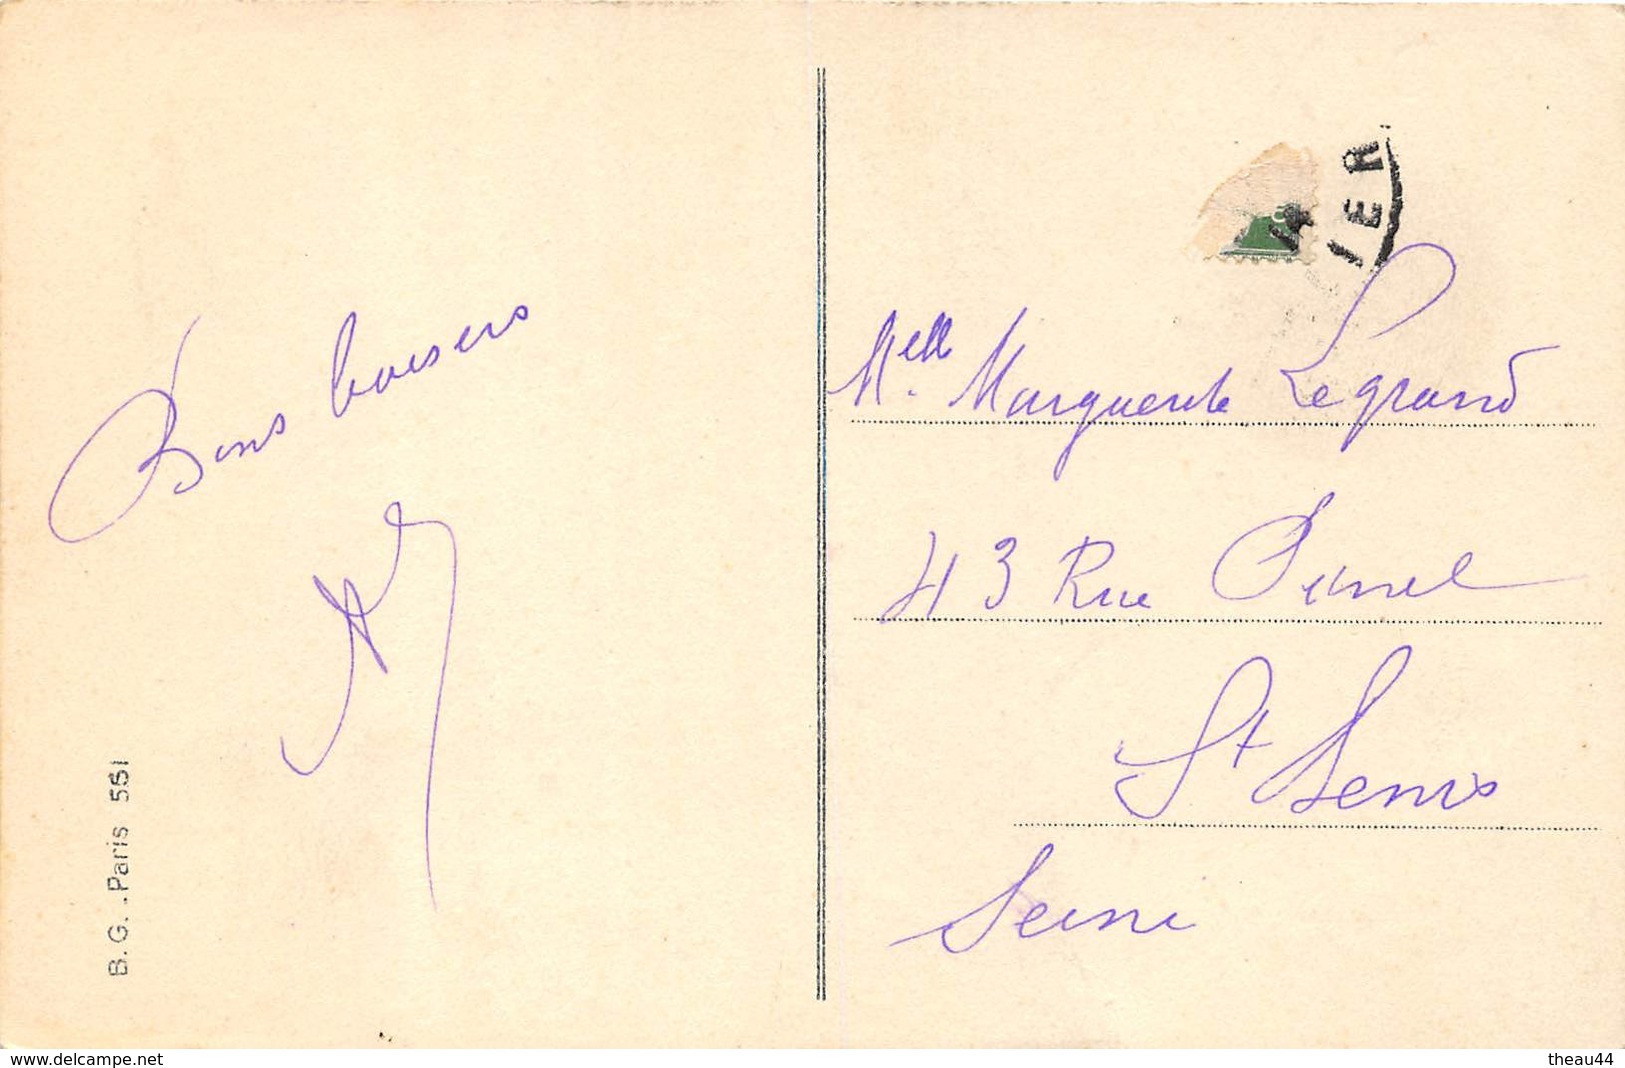 Bons baisers
B.G. Paris 551
14
IER
Melle Marguerite Legrand
43 Rue Pinel
St Denis
Seine
www.delcampe.net
theau44